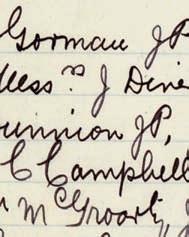 Gorman JP
Mess.rs J Dine
unnion JP,
C Campbell
McGroarty, J